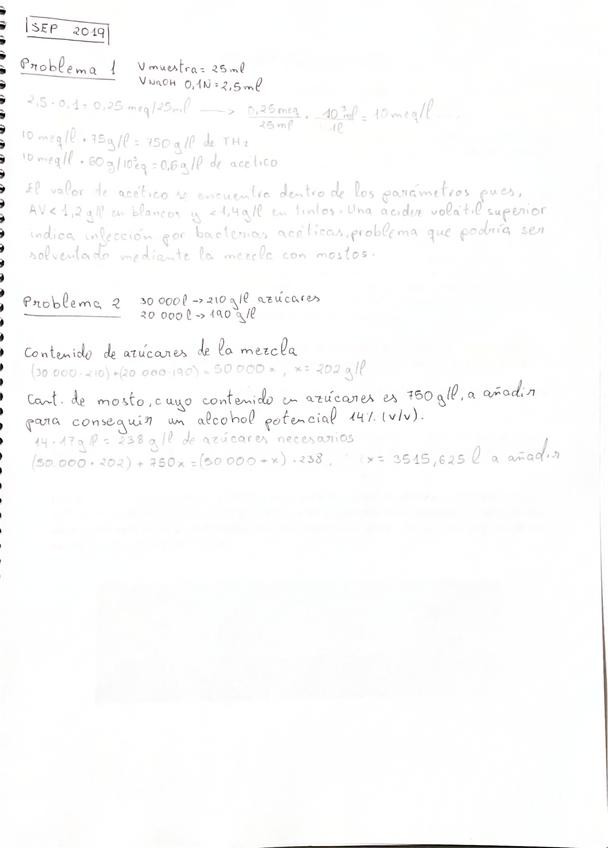 SEP 2019
Problema 1 Vmuestra = 25ml
VNaOH 0,1N = 2,5ml
2,5 · 0,1 = 0,25 meq/25ml → 0,25meq/25ml · 10³ml/1l = 10meq/l ...
10 meq/l · 75g/l = 750 g/l de TH₂
10 meq/l · 60g/10³eq = 0,6g/l de acético
El valor de acético se encuentra dentro de los parámetros pues,
AV < 1,2 g/l en blancos y < 1,4g/l en tintos. Una acidez volátil superior
indica infección por bacterias acéticas, problema que podría ser
solventado mediante la mezcla con mostos.
Problema 2 30 000l → 210 g/l azúcares
20 000l → 190 g/l
Contenido de azúcares de la mezcla
(30 000 · 210) + (20 000 · 190) = 50 000x, x = 202 g/l
Cant. de mosto, cuyo contenido en azúcares es 750 g/l, a añadir
para conseguir un alcohol potencial 14% (v/v).
14 · 17 g/l = 238 g/l de azúcares necesarios
(50.000 · 202) + 750x = (50 000 + x) · 238, x = 3515,625 l a añadir